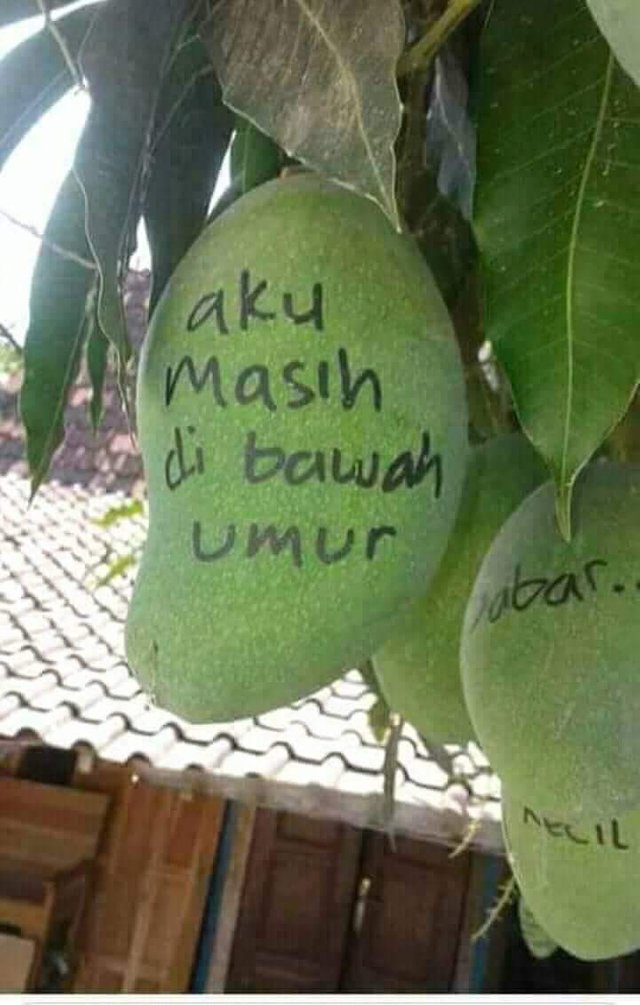 aku
masih
di bawah
umur
sabar..
KECIL